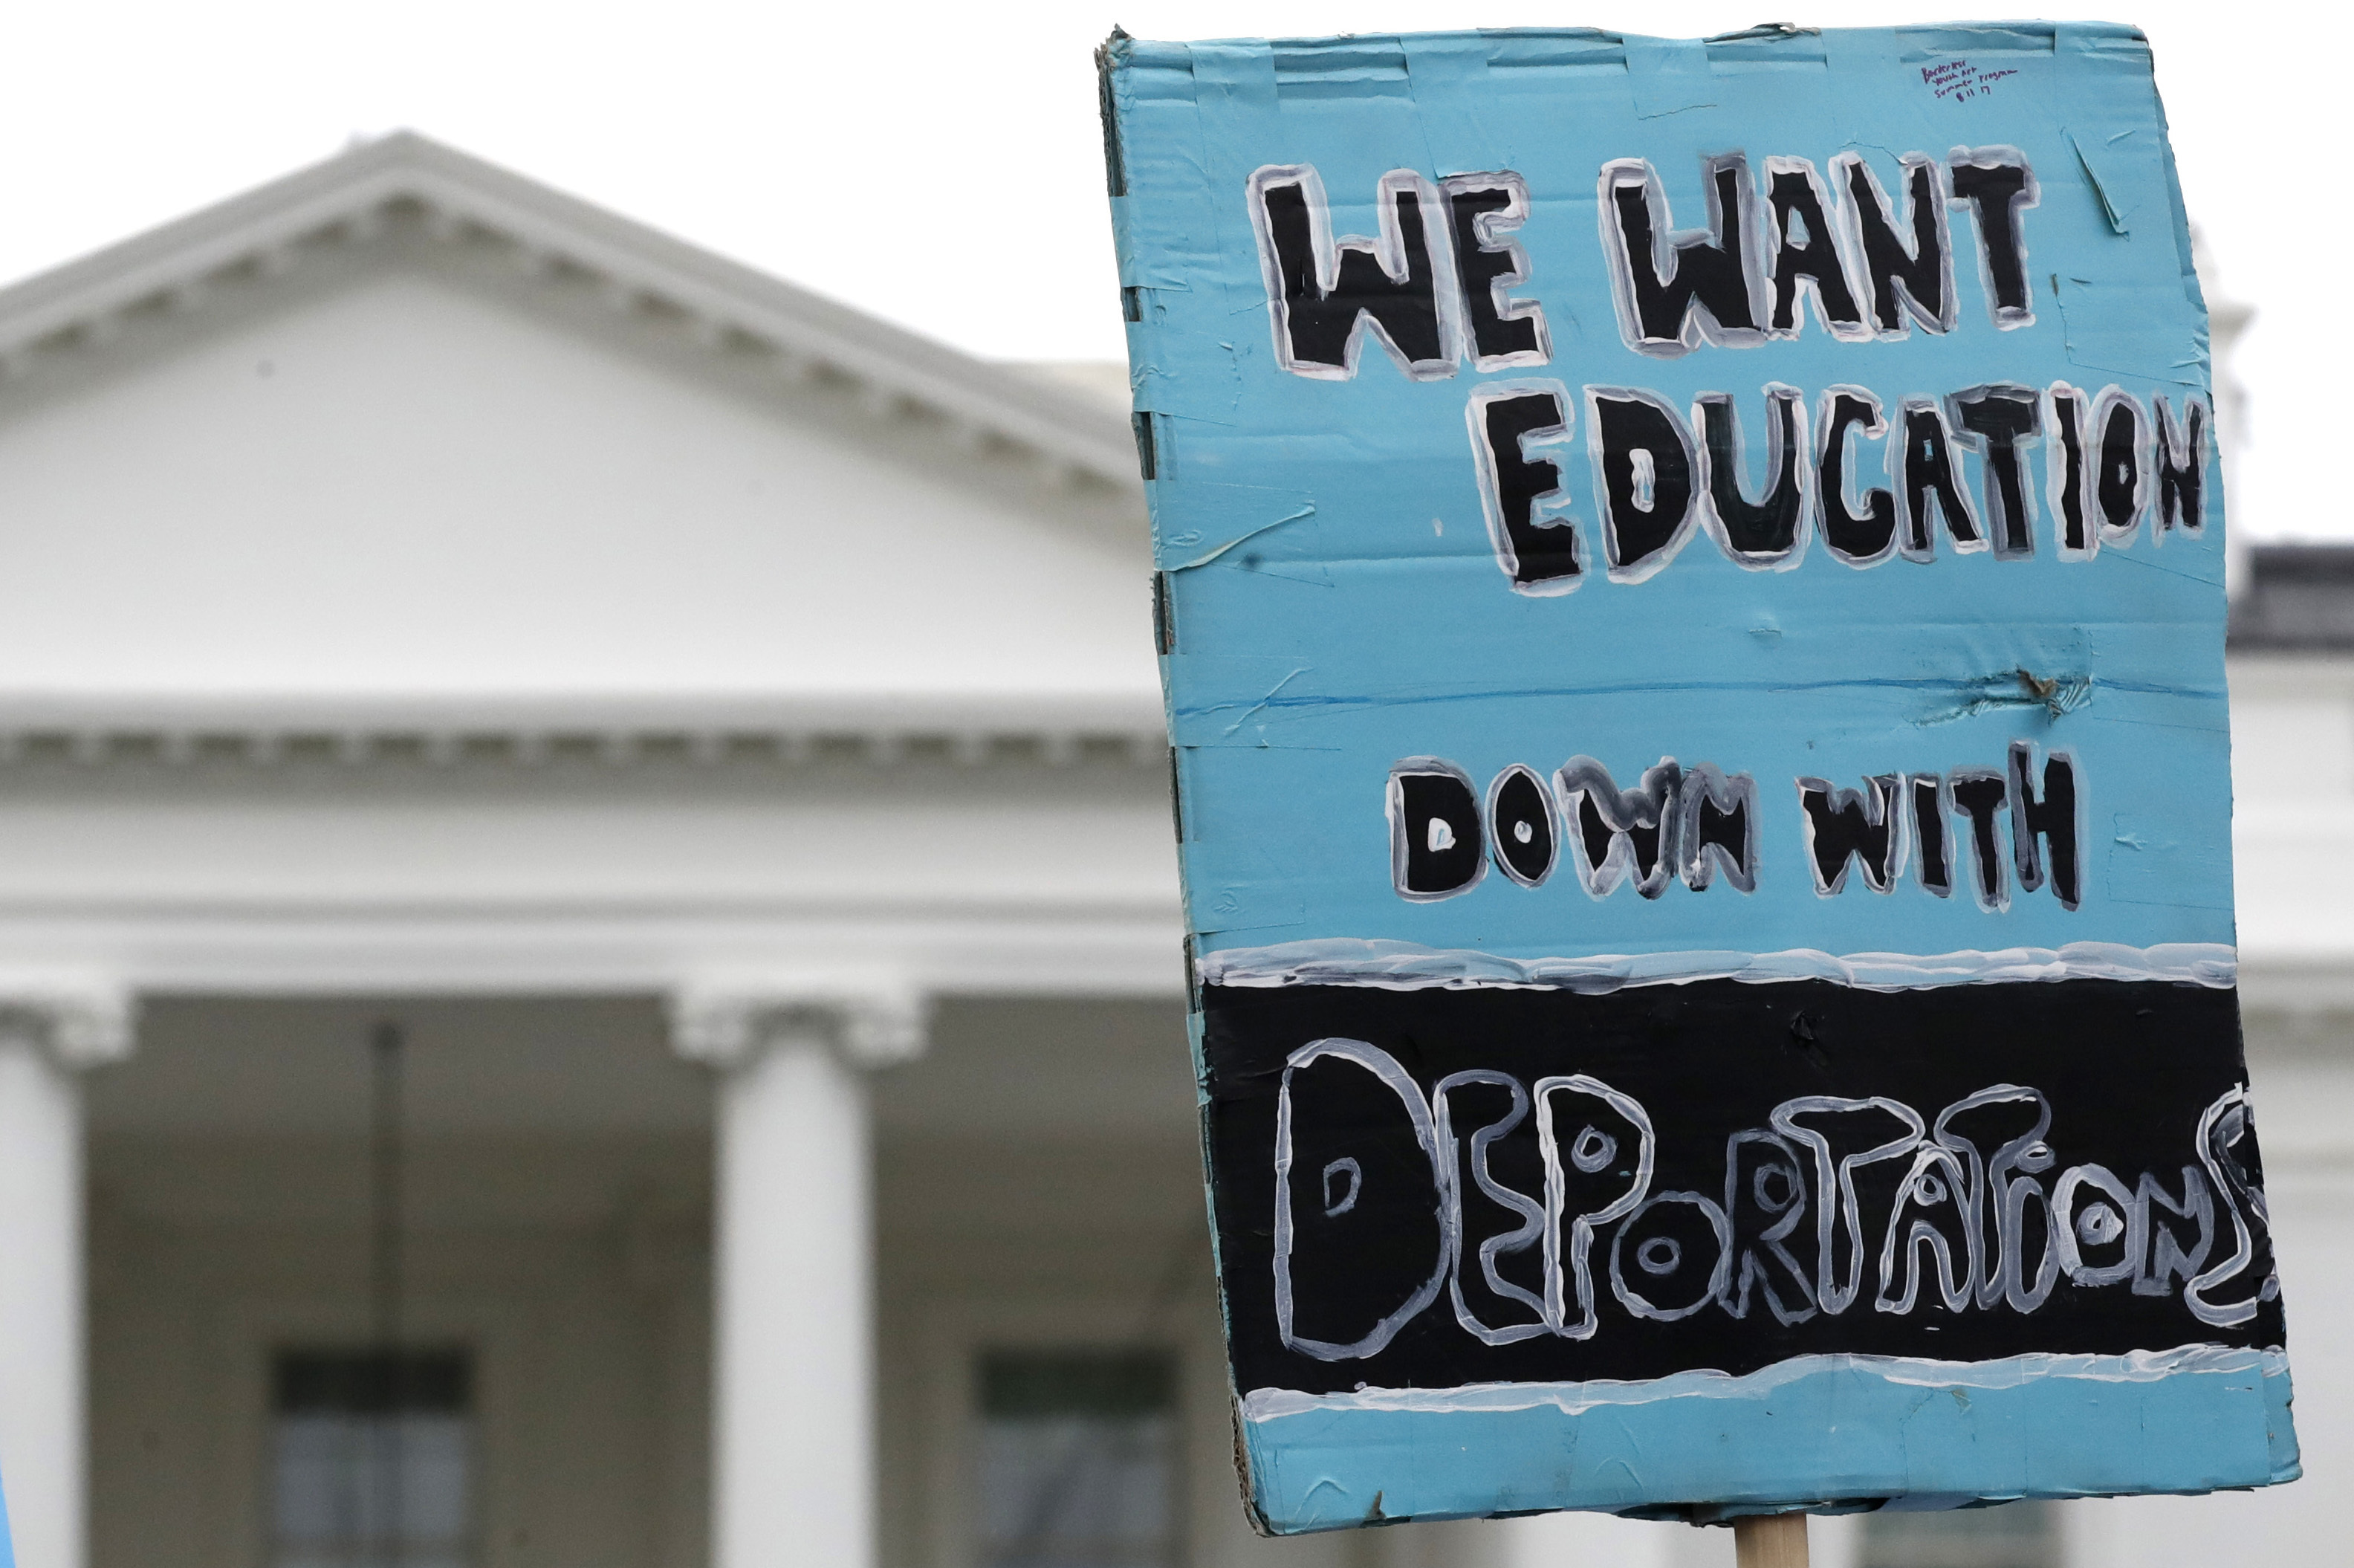 Borderless
Youth Art
Summer Program
8 11 17
WE WANT
EDUCATION
DOWN WITH
DEPORTATIONS